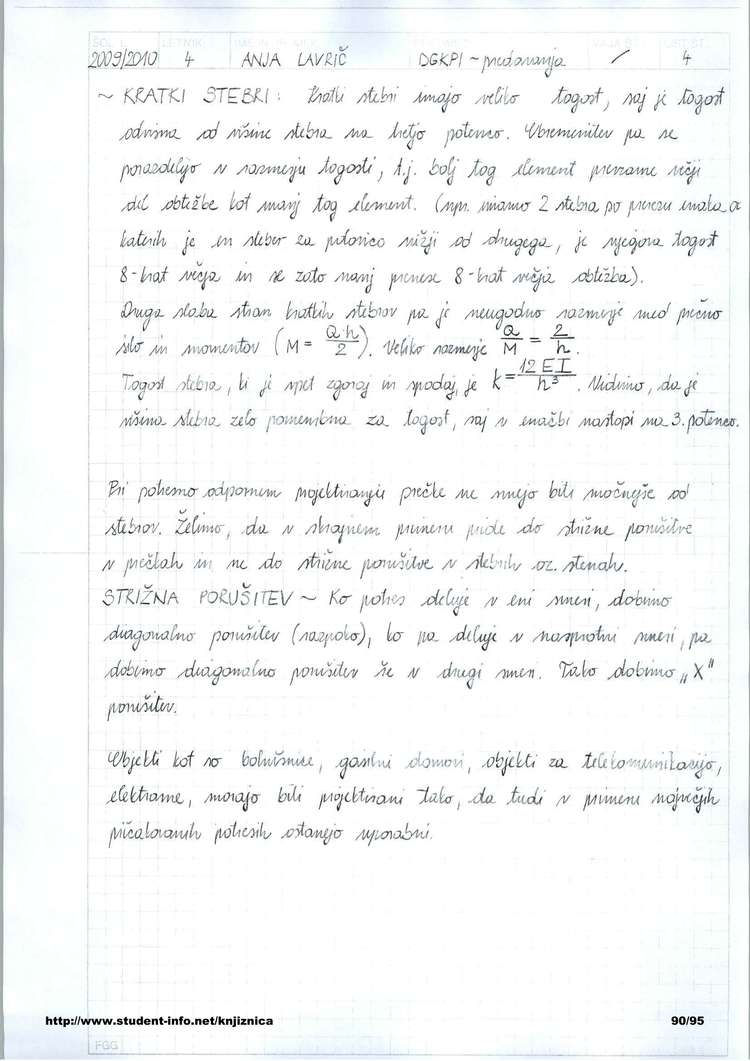 ŠOL. L. LETNIK IME IN PRIIMEK PREDMET VAJA ŠT. LIST ŠT.
2009/2010 4 ANJA LAVRIČ DGKPI ~ predavanja / 4
~ KRATKI STEBRI: Kratki stebri imajo veliko togost, saj je togost
odvisna od višine stebra na tretjo potenco. Obremenitev pa se
porazdelijo v razmerju togosti, t.j. bolj tog element prevzame večji
del obtežbe kot manj tog element. (npr. imamo 2 stebra po prerezu enaka a
katerih je en steber za polovico nižji od drugega, je njegova togost
8-krat večja in se zato nanj prenese 8-krat večja obtežba).
Druga slaba stran kratkih stebrov pa je neugodno razmerje med prečno
silo in momentov (M = Q·h/2). Veliko razmerje Q/M = 2/h.
Togost stebra, ki je vpet zgoraj in spodaj, je k = 12 EI/h³. Vidimo, da je
višina stebra zelo pomembna za togost, saj v enačbi nastopi na 3. potenco.
Pri potresno odpornem projektiranju prečke ne smejo biti močnejše od
stebrov. Želimo, da v skrajnem primeru pride do strižne porušitve
v prečkah in ne do strižne porušitve v stebrih oz. stenah.
STRIŽNA PORUŠITEV ~ Ko potres deluje v eni smeri, dobimo
diagonalno porušitev (razpoko), ko pa deluje v nasprotni smeri, pa
dobimo diagonalno porušitev še v drugi smeri. Tako dobimo „X"
porušitev.
Objekti kot so bolnišnice, gasilni domovi, objekti za telekomunikacijo,
elektrarne, morajo biti projektirani tako, da tudi v primeru največjih
pričakovanih potresih ostanejo uporabni.
http://www.student-info.net/knjiznica 90/95
FGG